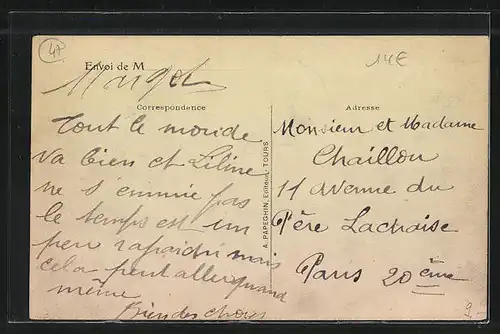 47
14€
Envoi de M
Margot
Correspondance
Adresse
Tout le monde
va bien et Liline
ne s'ennuie pas
le temps est un
peu rafraichi mais
cela peut aller quand
même
Bien des choses
A. PAPEGHIN, Editeur, TOURS
Monsieur et Madame
Chaillou
11 avenue du
Père Lachaise
Paris 20ème
9